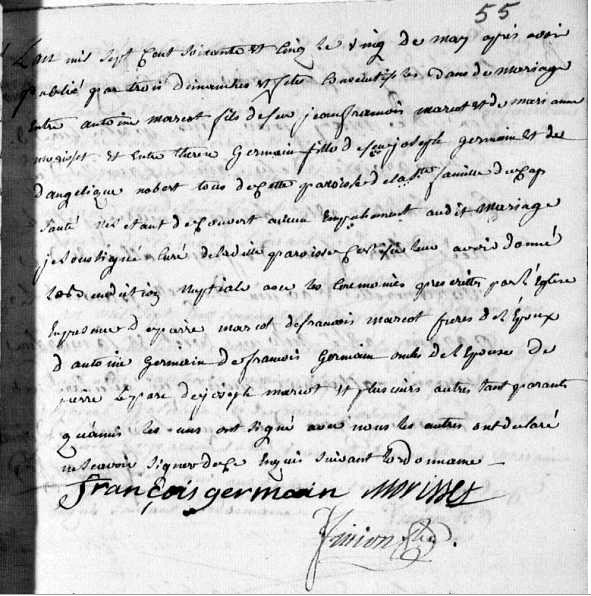 55
L'an mil sept Cent Soixante et Cinq le vinq de may après avoir
publié par trois dimanches et fetes Consecutifs les bans de mariage
Entre antoine marcot fils de feu jean francois marcot et de marianne
morisset et Entre therese Germain fille de feu joseph germain et de
d'angelique nobert tous de Cette paroisse de la Ste famille du Cap
Santé n'etant decouvert aucun Empechement audit Mariage
je soussigné curé de laditte paroisse Certifie leur avoir donné
la benediction Nuptiale avec les Ceremonies prescrittes par l'Eglise
En presence de pierre marcot de francois marcot freres de l'Epoux
d'antoine Germain de francois Germain oncles de l'Epouse de
pierre de joseph marcot et plusieurs autres tant parants
qu'amis les uns ont signé avec nous les autres ont declaré
ne scavoir signer de ce Enquis suivant l'ordonnance
François germain morisset